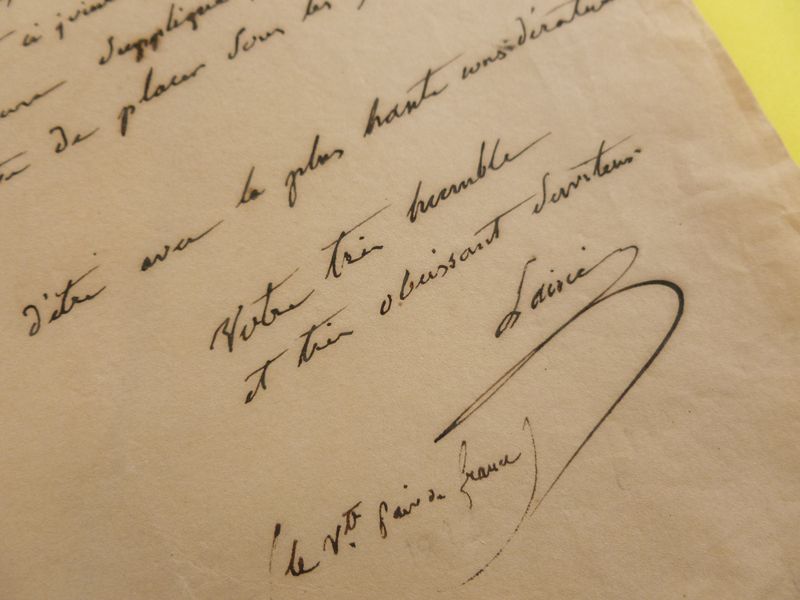 à
supplique
de placer sous les
d'être avec la plus haute considération
Votre très humble
et très obéissant serviteur
Lainé
(le Vte pair de france)